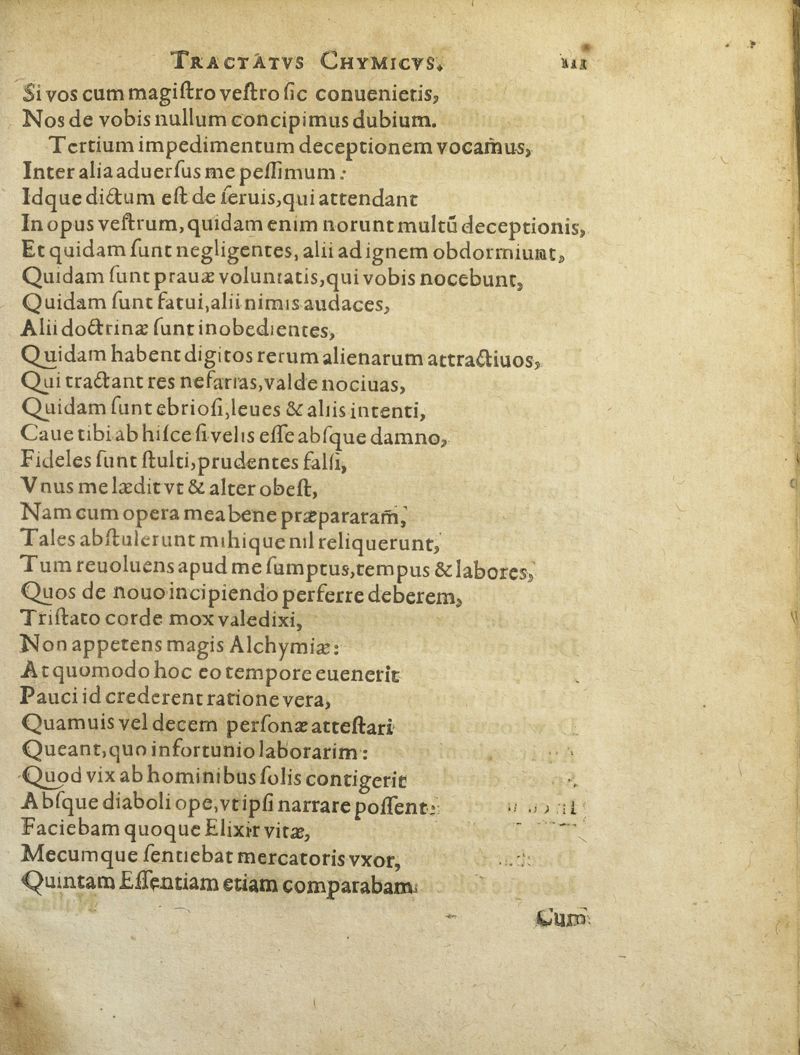 TRACTATVS CHYMICVS. 111
Si vos cum magiſtro veſtro ſic conuenietis,
Nos de vobis nullum concipimus dubium.
Tertium impedimentum deceptionem vocam̃us,
Inter alia aduerſus me peſſimum:
Idque dictum eſt de ſeruis, qui attendant
In opus veſtrum, quidam enim norunt multũ deceptionis,
Et quidam ſunt negligentes, alii ad ignem obdormiunt,
Quidam ſunt prauæ voluntatis, qui vobis nocebunt,
Quidam ſunt fatui, alii nimis audaces,
Alii doctrinæ ſunt inobedientes,
Quidam habent digitos rerum alienarum attractiuos,
Qui tractant res nefarias, valde nociuas,
Quidam ſunt ebrioſi, leues & aliis intenti,
Caue tibi ab hiſce ſi velis eſſe abſque damno,
Fideles ſunt ſtulti, prudentes falſi,
Vnus me lædit vt & alter obeſt,
Nam cum opera mea bene præpararam̃,
Tales abſtulerunt mihique nil reliquerunt,
Tum reuoluens apud me ſumptus, tempus & labores,
Quos de nouo incipiendo perferre deberem,
Triſtato corde mox valedixi,
Non appetens magis Alchymiæ:
At quomodo hoc eo tempore euenerit
Pauci id crederent ratione vera,
Quamuis vel decem perſonæ atteſtari
Queant, quo infortunio laborarim:
Quod vix ab hominibus ſolis contigerit
Abſque diaboli ope, vt ipſi narrare poſſent:
Faciebam quoque Elixir vitæ,
Mecumque ſentiebat mercatoris vxor,
Quintam Eſſentiam etiam comparabam
Cum